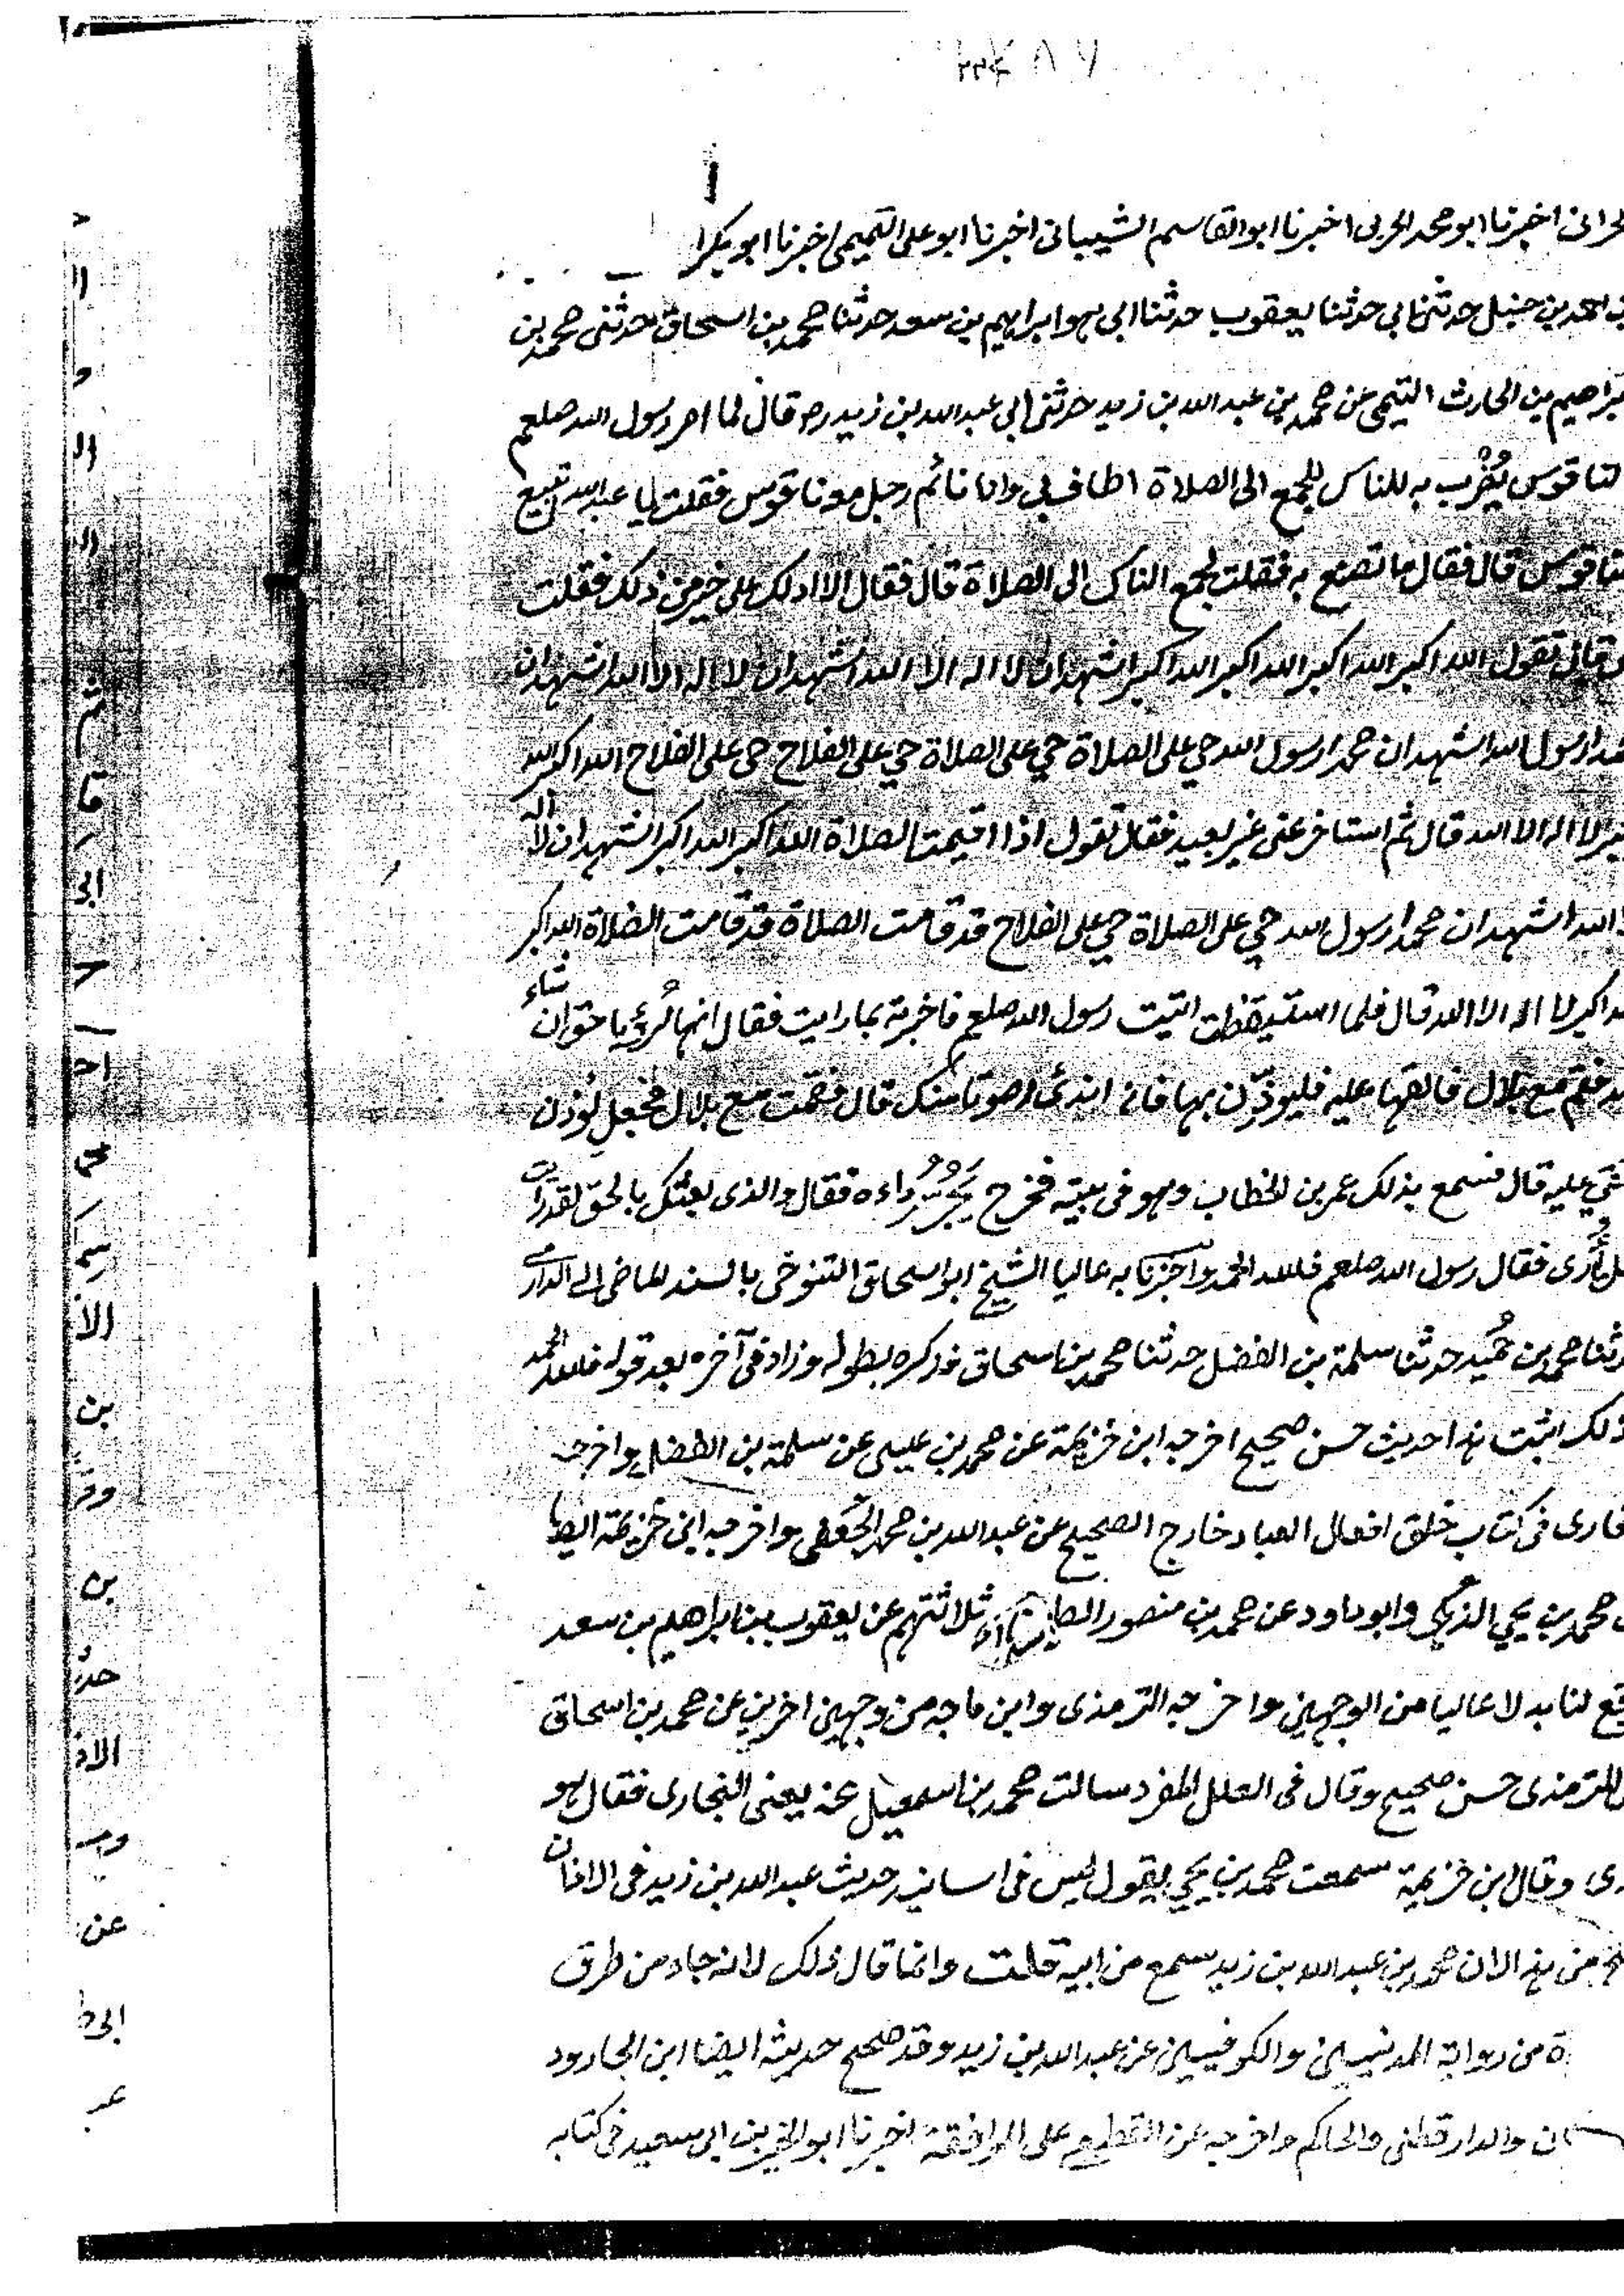 اخبرنا ابو محمد الحربى اخبرنا ابو القاسم الشيبانى اخبرنا ابو على التميمى اخبرنا ابو بكر
احمد بن حنبل حدثنى ابي حدثنا يعقوب حدثنا ابى هو ابراهيم بن سعد حدثنا محمد بن اسحاق حدثنى محمد بن
ابراهيم بن الحارث التيمى عن محمد بن عبد الله بن زيد حدثنى ابى عبد الله بن زيد رضـ قال لما امر رسول الله صلعم
لناقوس يُضْرب به للناس للجمع الى الصلاة اطاف بى وانا نائم رجل معه ناقوس فقلت يا عبد الله تبيع
ناقوس قال فقال ما تصنع به فقلت لجمع الناس الى الصلاة قال فقال الا ادلك على خير من ذلك فقلت
تقول الله اكبر الله اكبر الله اكبر الله اكبر اشهد ان لا اله الا الله اشهد ان لا اله الا الله اشهد ان
رسول الله اشهد ان محمدا رسول الله حي على الصلاة حي على الصلاة حي على الفلاح حى على الفلاح الله اكبر الله
لا اله الا الله قال ثم استاخر عنى غير بعيد فقال تقول اذا اقيمت الصلاة الله اكبر الله اكبر اشهد ان لا اله
الله اشهد ان محمدا رسول الله حي على الصلاة حي على الفلاح قد قامت الصلاة قد قامت الصلاة الله اكبر
اكبر لا اله الا الله قال فلما استيقظت اتيت رسول الله صلعم فاخبرته بما رايت فقال انها لرُؤيا حق ان شاء
فقم مع بلال فالقها عليه فليوذّن بها فانه اندىٰ صوتا منك قال فقمت مع بلال فجعل يؤذن
عليه قال فسمع بذلك عمر بن الخطاب وهو فى بيته فخرج يَجُرُّ رداءه فقال والذى بعثك بالحق لقد رايت
أُرى فقال رسول الله صلعم فلله الحمد واخبرنا به عاليا الشيخ ابو اسحاق التنوخى بالسند الماضى الى الدارمى
ثنا محمد بن حُميد حدثنا سلمة بن الفضل حدثنا محمد بن اسحاق فذكره بطوله وزاد فى آخره بعد قوله فلله الحمد
ذلك اثبت هذا حديث حسن صحيح اخرجه ابن خزيمة عن محمد بن عيسى عن سلمة بن الفضل واخرجه
فى كتاب خلق افعال العباد خارج الصحيح عن عبد الله بن محمد الجُعفى واخرجه ابن خزيمة ايضا
محمد بن يحيى الذهلي وابو داود عن محمد بن منصور الطوسى ثلاثتهم عن يعقوب بن ابراهيم بن سعد
لنا بدلا عاليا من الوجهين واخرجه الترمذى وابن ماجه من وجهين اخرين عن محمد بن اسحاق
الترمذى حسن صحيح وقال فى العلل المفرد سالت محمد بن اسمعيل عنه يعنى البخارى فقال هو
وقال ابن خزيمة سمعت محمد بن يحيى يقول ليس فى اسانيد حديث عبد الله بن زيد فى الاذان
من هذا لان محمد بن عبد الله بن زيد سمع من ابيه قلت وانما قال ذلك لانه جاء من طرق
من رواية المدنيين والكوفيين عن عبد الله بن زيد وقد صحح حديثه ايضا ابن الجارود
والدارقطنى والحاكم واخرجه عن القطيعى على الموافقة اخبرنا ابو الخير بن ابى سعيد فى كتابه